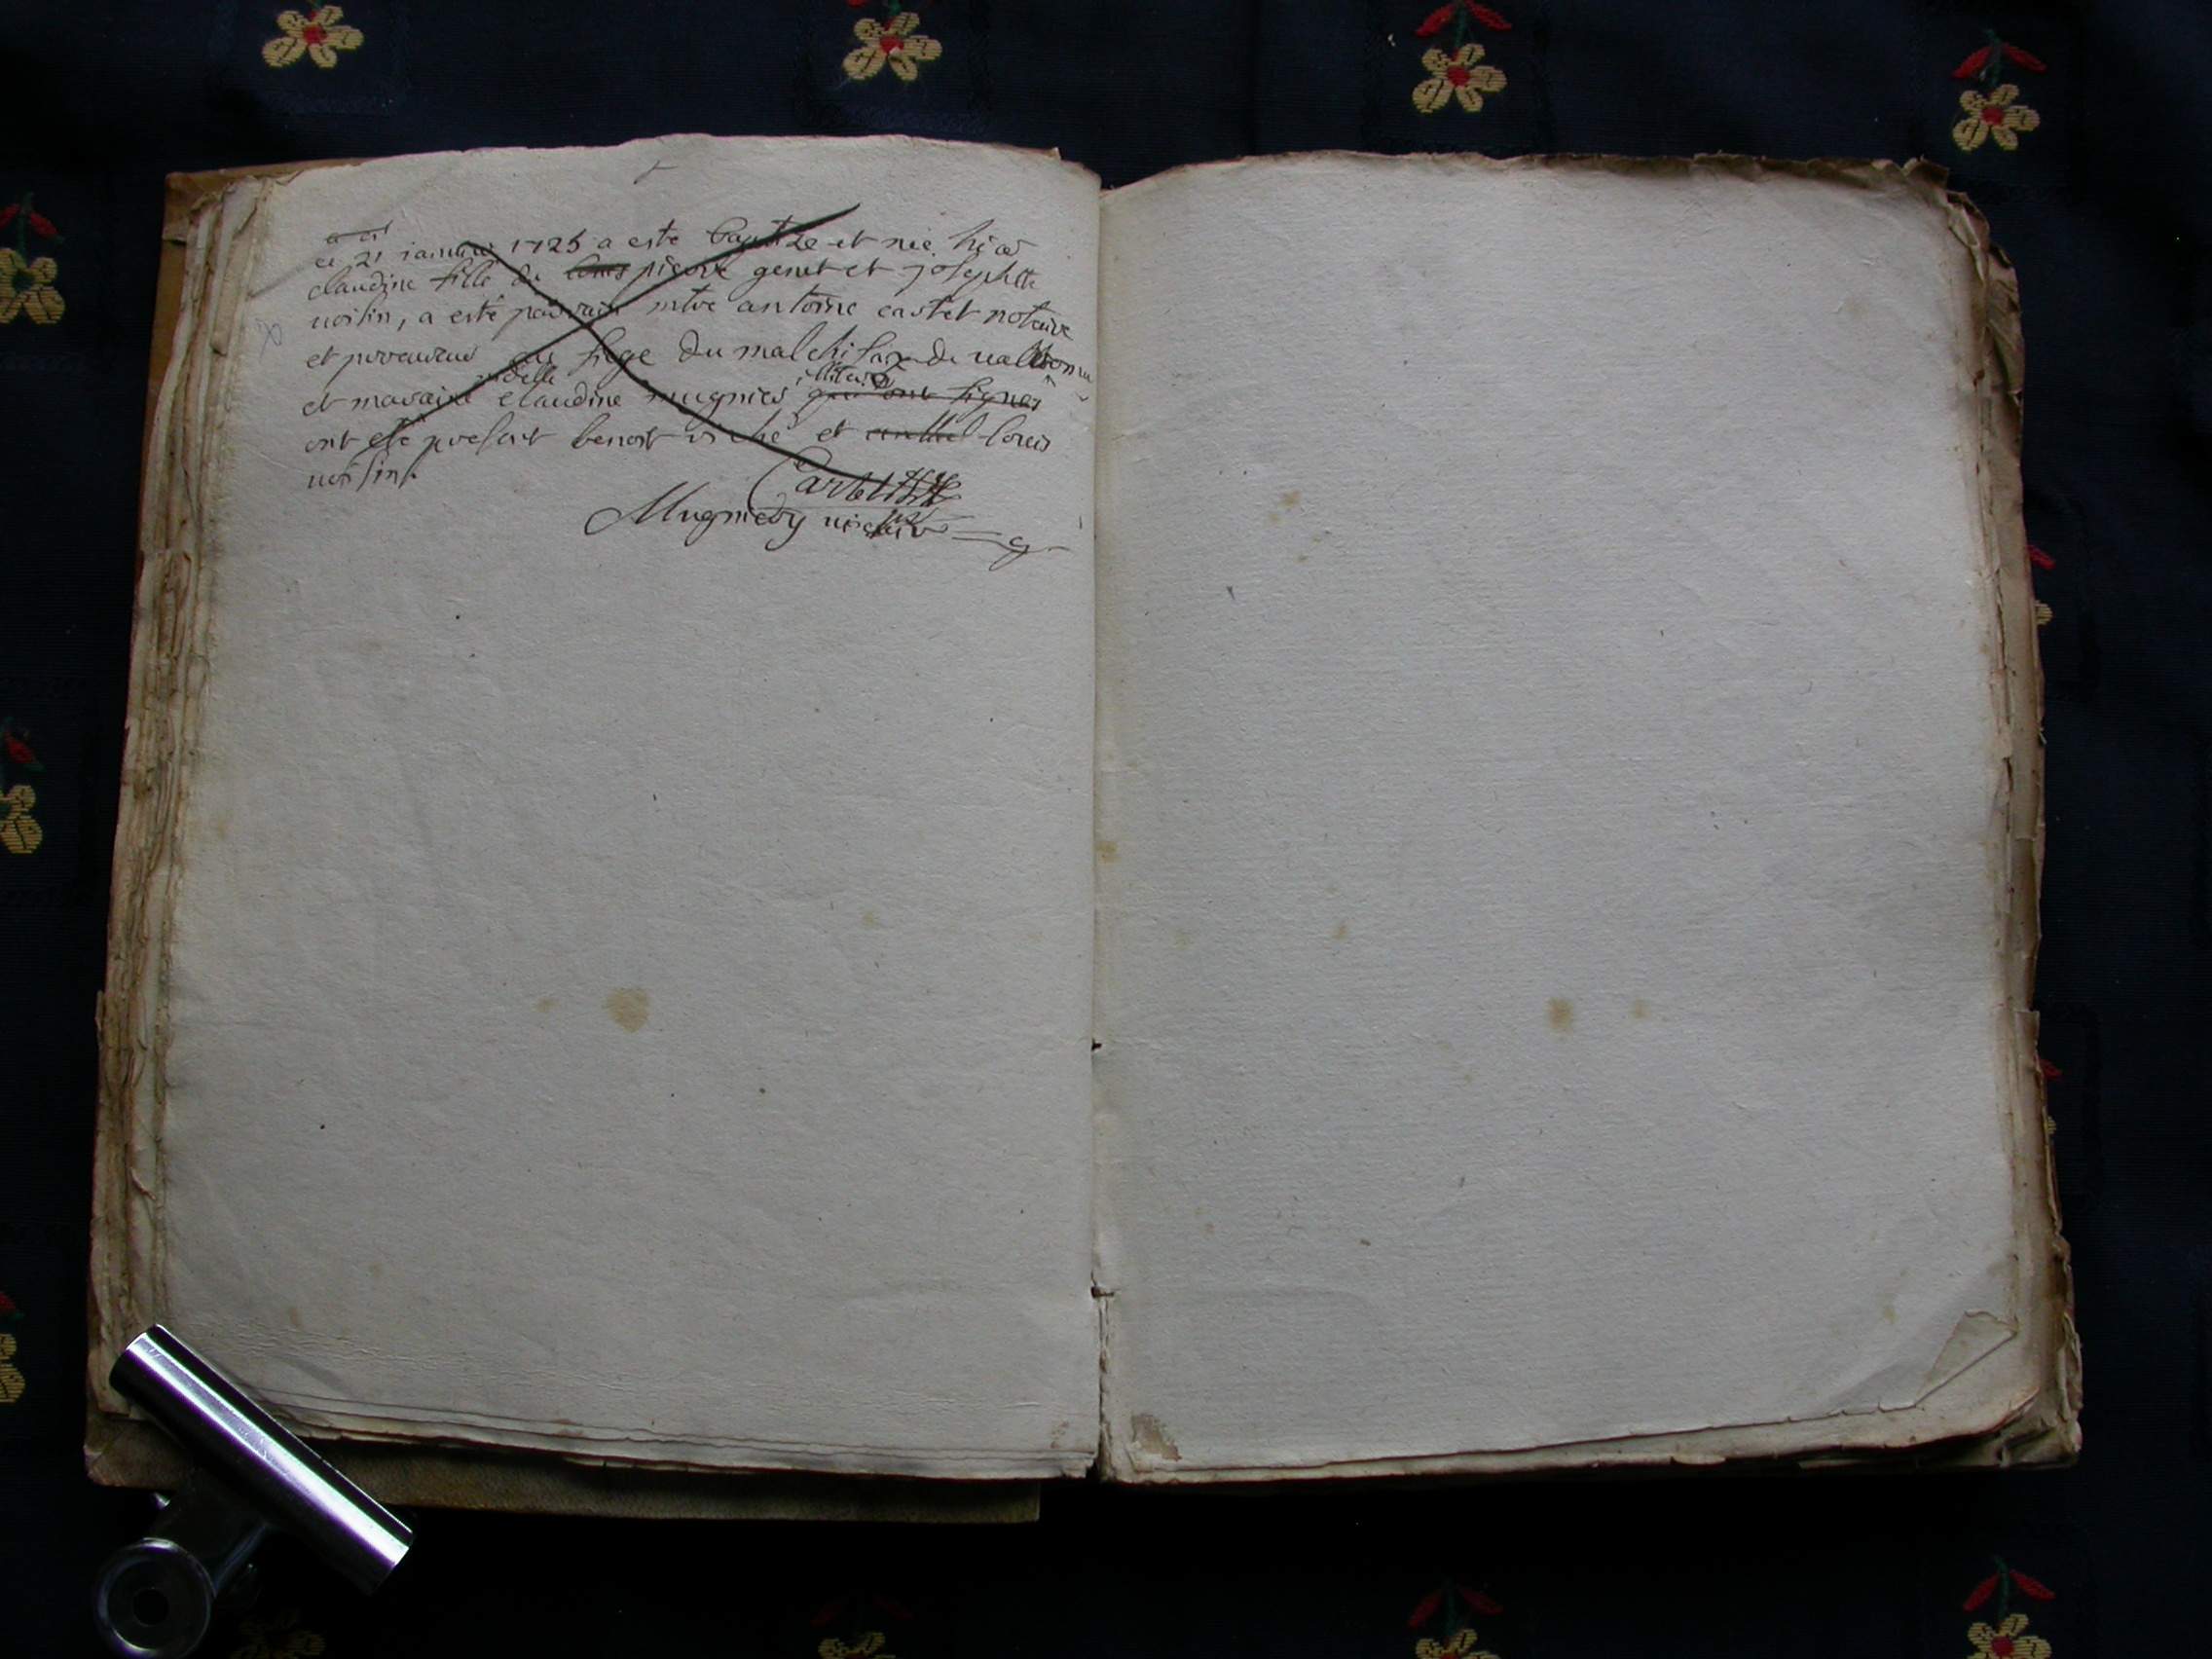 ce 21 ianuier 1725 a este baptize et nee hier
claudine fille de louis pierre genet et josephte
uoisin, a esté parrain mtre antoine castet notaire
et procureur au siege du malchisa de ualbonne
et maraine delle claudine mugnier illiteré qui ont signes
ont esté present benoit viche et louis
uoisin.
Mugniery uicaire